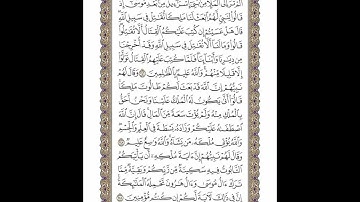 أَلَمْ تَرَ إِلَى ٱلْمَلَإِ مِنۢ بَنِىٓ إِسْرَٰٓءِيلَ مِنۢ بَعْدِ مُوسَىٰٓ إِذْ
قَالُوا۟ لِنَبِىٍّ لَّهُمُ ٱبْعَثْ لَنَا مَلِكًا نُّقَٰتِلْ فِى سَبِيلِ ٱللَّهِ
قَالَ هَلْ عَسَيْتُمْ إِن كُتِبَ عَلَيْكُمُ ٱلْقِتَالُ أَلَّا تُقَٰتِلُوا۟
قَالُوا۟ وَمَا لَنَآ أَلَّا نُقَٰتِلَ فِى سَبِيلِ ٱللَّهِ وَقَدْ أُخْرِجْنَا
مِن دِيَٰرِنَا وَأَبْنَآئِنَا فَلَمَّا كُتِبَ عَلَيْهِمُ ٱلْقِتَالُ تَوَلَّوْا۟
إِلَّا قَلِيلًا مِّنْهُمْ وَٱللَّهُ عَلِيمٌۢ بِٱلظَّٰلِمِينَ ٢٤٦ وَقَالَ لَهُمْ
نَبِيُّهُمْ إِنَّ ٱللَّهَ قَدْ بَعَثَ لَكُمْ طَالُوتَ مَلِكًا
قَالُوٓا۟ أَنَّىٰ يَكُونُ لَهُ ٱلْمُلْكُ عَلَيْنَا وَنَحْنُ أَحَقُّ
بِٱلْمُلْكِ مِنْهُ وَلَمْ يُؤْتَ سَعَةً مِّنَ ٱلْمَالِ قَالَ إِنَّ ٱللَّهَ
ٱصْطَفَىٰهُ عَلَيْكُمْ وَزَادَهُۥ بَسْطَةً فِى ٱلْعِلْمِ وَٱلْجِسْمِ
وَٱللَّهُ يُؤْتِى مُلْكَهُۥ مَن يَشَآءُ وَٱللَّهُ وَٰسِعٌ عَلِيمٌ ٢٤٧
وَقَالَ لَهُمْ نَبِيُّهُمْ إِنَّ ءَايَةَ مُلْكِهِۦٓ أَن يَأْتِيَكُمُ
ٱلتَّابُوتُ فِيهِ سَكِينَةٌ مِّن رَّبِّكُمْ وَبَقِيَّةٌ مِّمَّا
تَرَكَ ءَالُ مُوسَىٰ وَءَالُ هَٰرُونَ تَحْمِلُهُ ٱلْمَلَٰٓئِكَةُ
إِنَّ فِى ذَٰلِكَ لَءَايَةً لَّكُمْ إِن كُنتُم مُّؤْمِنِينَ ٢٤٨